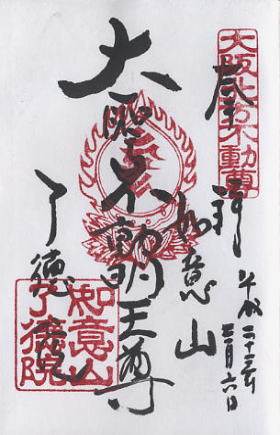 奉拝
平成二十三年
月六日
如意山
大聖不動明王尊
了徳院
大阪
不動尊
如意山
了徳院